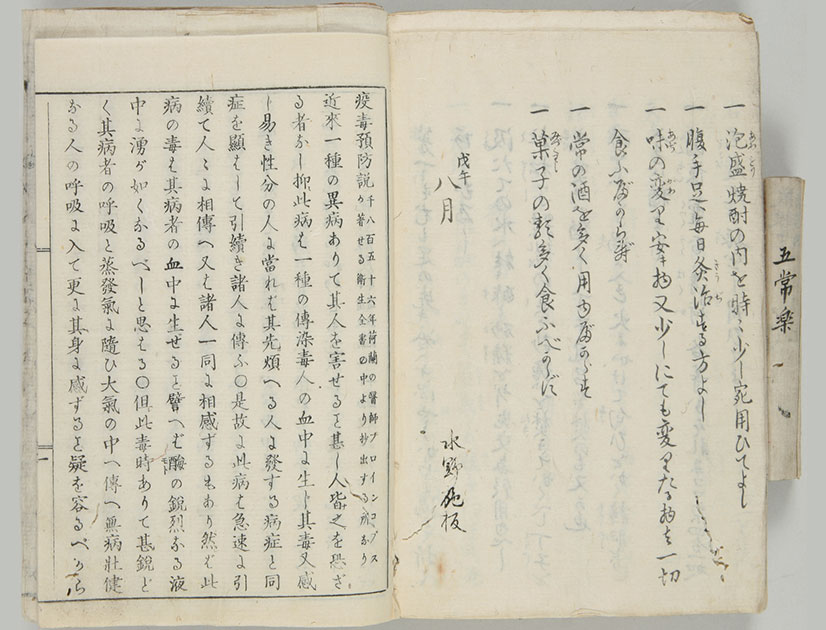 五常楽
一 泡盛焼酎の内を時々少し宛用ひてよし
一 腹手足へ毎日灸治する方よし
一 味の変り 物又少しにても変りたる物を一切
食ふべからず
一 常の酒を多く用ゆべからず
一 菓子の類多く食ふべからず
戊午
八月
水野施板
疫毒預防説 千八百五十六年荷蘭の醫師プロインコプス
が著せる衛生全書の中より抄出する所なり
近來一種の異病ありて其人を害せるヿ甚し人皆之を恐ざ
る者なし抑此病は一種の傳染毒人の血中に生し其毒又感
し易き性分の人に當れば其先煩へる人に發する病症と同
症を顯はして引續き諸人に傳ふ〇是故に此病は急速に引
續て人々に相傳へ又は諸人一同に相感ずるもあり然ば此
病の毒は其病者の血中に生ぜるヿ譬へば酶の鋭烈なる液
中に湧が如くなるべしと思はる〇但此毒時ありて甚鋭ど
く其病者の呼吸と蒸發氣に隨ひ大氣の中へ傳へ無病壯健
なる人の呼吸に入て更に其身に感ずるヿ疑を容るべから
一